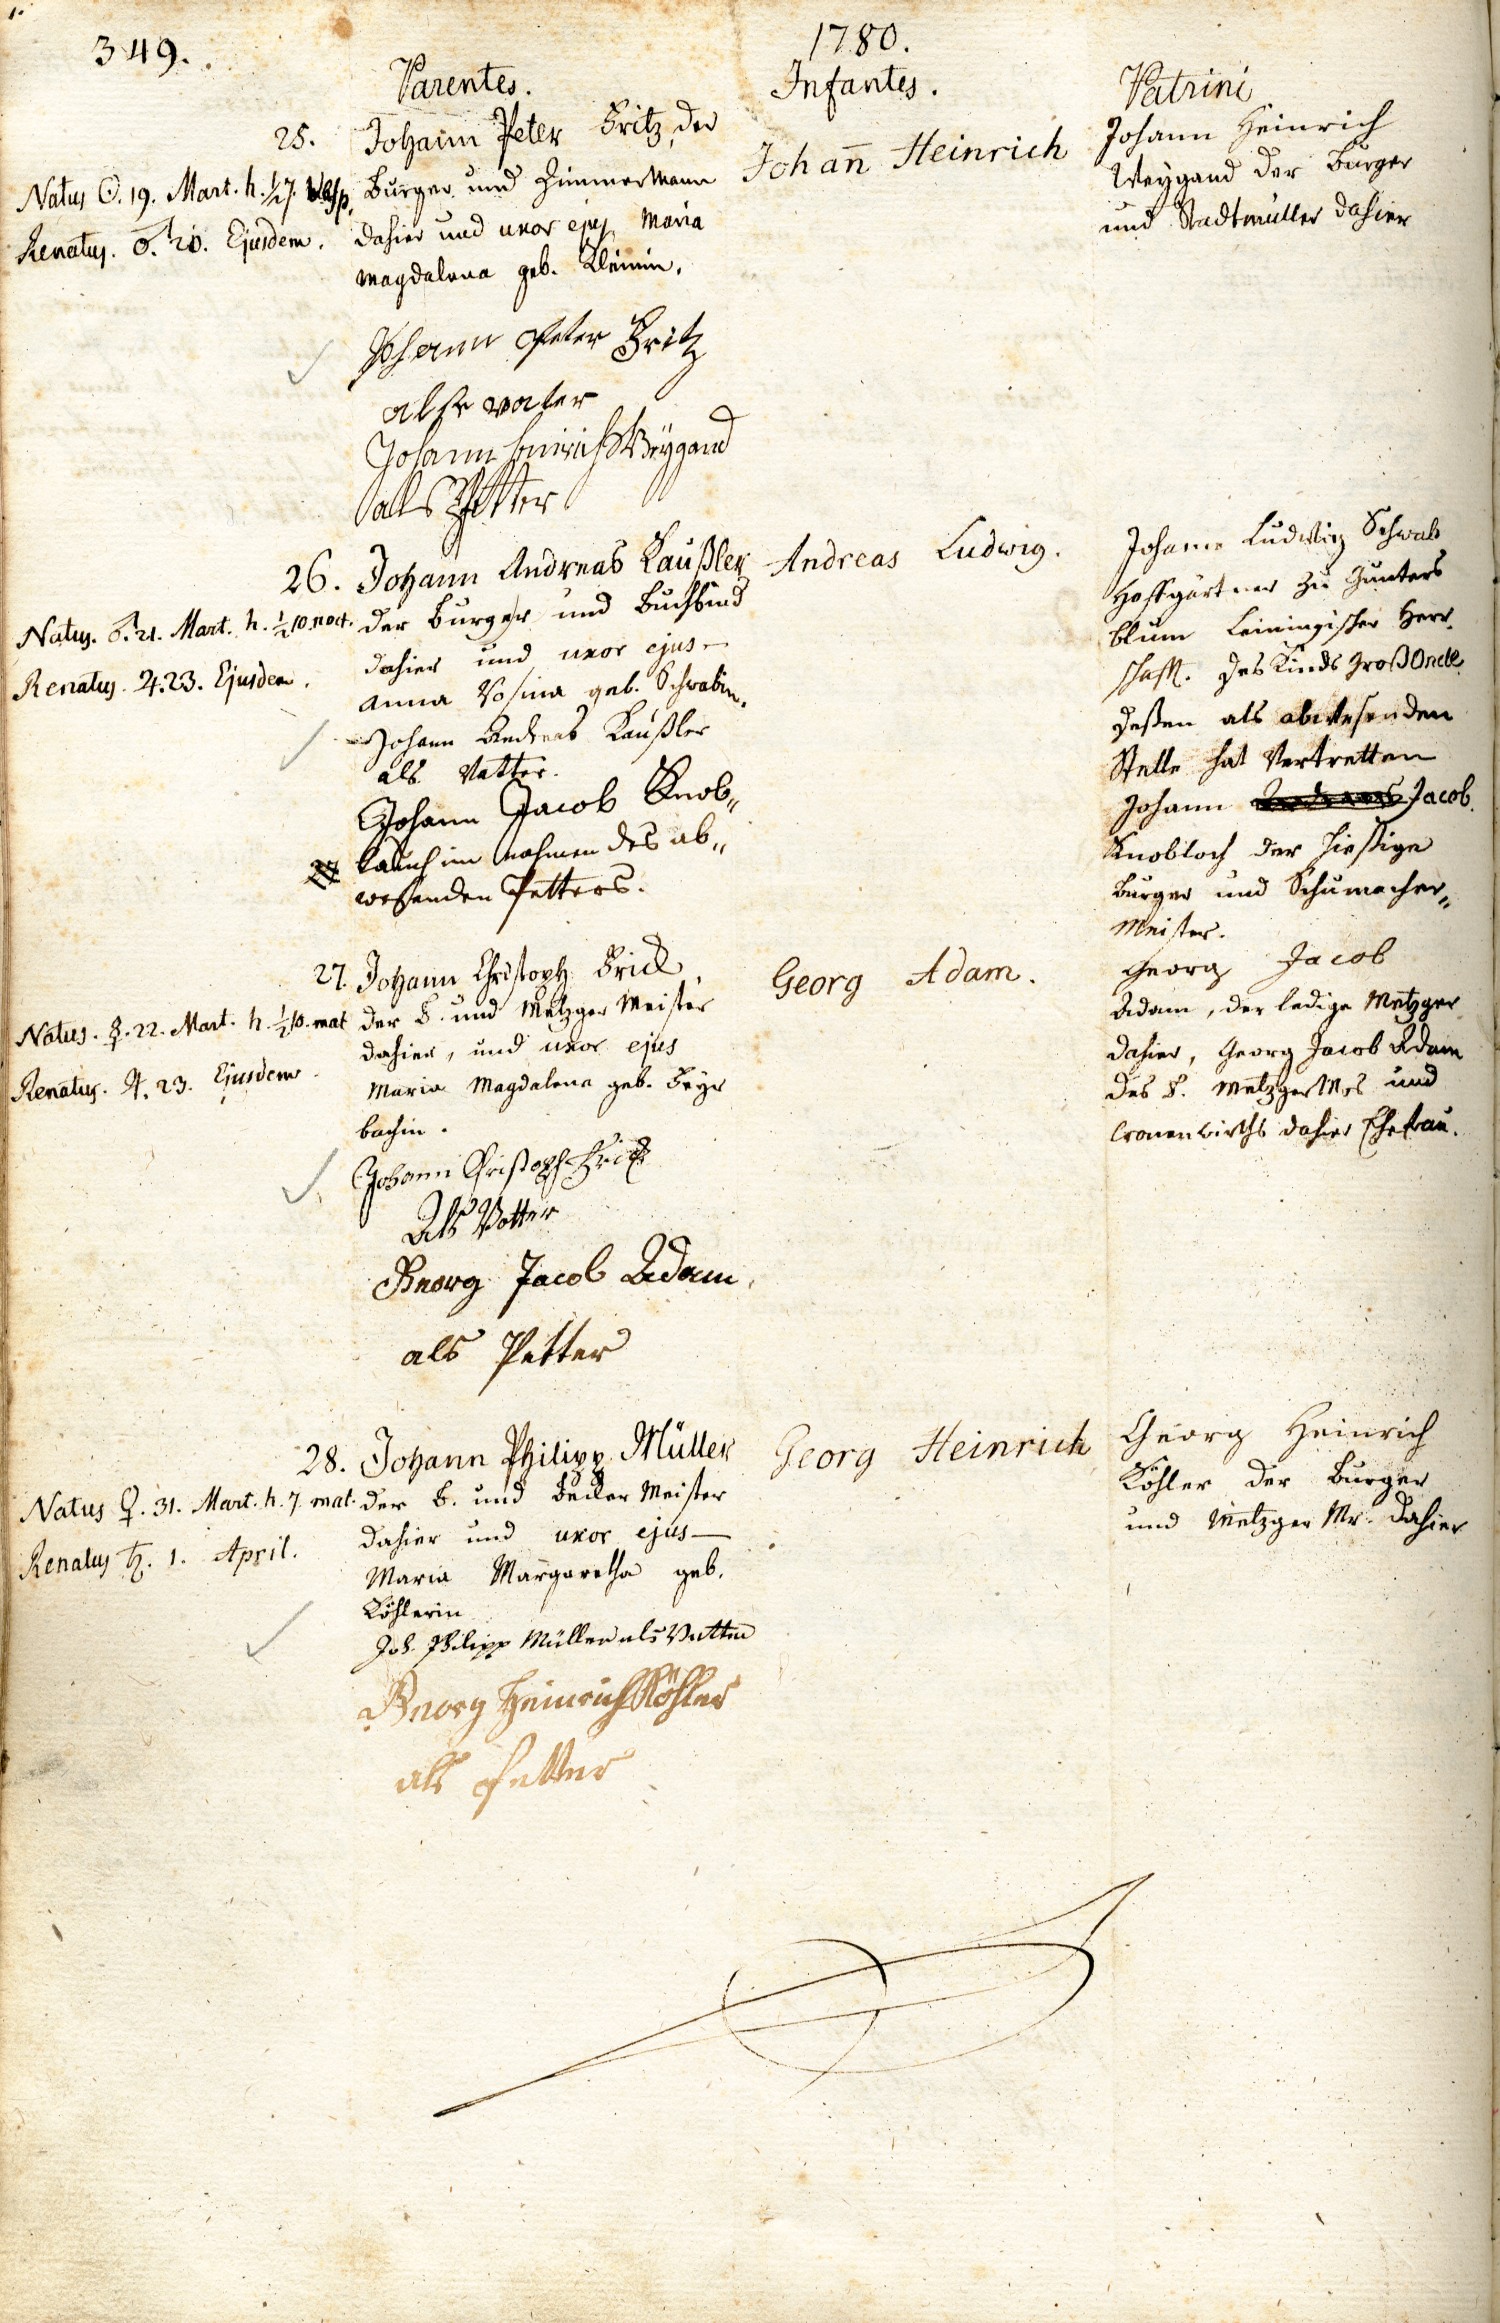 349.
1780.
Parentes.
Infantes.
Patrini
25.
Natus ☉. 19. Mart. h. ½7 Vesp.
Renatus. ♂. 20. Ejusdem.
Johann Peter Fritz, der
Burger und Zimmermann
dahier und uxor ejus Maria
Magdalena geb. Kleinin.
Johann Peter Fritz
alss vater
Johann Heinrich Weygand
als Petter
Johañ Heinrich
Johann Heinrich
Weygand der Burger
und Stadtmüller dahier
26.
Natus. ♂. 21. Mart. h. ½10 noct.
Renatus. ♃. 23. Ejusdem.
Johann Andreas Kaußler
der Burger und Buchbind
dahier und uxor ejus
Anna Rosina geb. Schwabin.
Johann Andreas Kaußler
als Vatter.
Johann Jacob Knob„
lauch im nahmen des ab„
wesenden Petters.
Andreas Ludwig.
Johann Ludwig Schwab
Hoffgärtner zu Gunters
blum Leiningischer Herr
schafft. des Kinds Groß Oncle
deßen als abwesenden
Stelle hat Vertretten
Johann Jacob
Knobloch der hiesige
Burger und Schumacher„
Meister.
27.
Natus. ☿. 22. Mart. h. ½10. mat
Renatus. ♃. 23. Ejusdem
Johann Christoph Frick
der B. und Metzger Meister
dahier, und uxor ejus
Maria Magdalena geb. Feyr
bachin.
Johann Christoph Frick
Als Vatter
Georg Jacob Adam
als Petter
Georg Adam.
Georg Jacob
Adam, der ledige Metzger
dahier, Georg Jacob Adam
des B. Metzger Mrs und
Cronenwirths dahier Ehefrau.
28.
Natus ♀. 31. Mart. h. 7 mat.
Renatus ♄. 1. April.
Johann Philipp Müller
der B. und Becker Meister
dahier und uxor ejus
Maria Margaretha geb.
Köhlerin
Joh. Philipp Müller als Vatter
Georg Heinrich Köhler
als Petter
Georg Heinrich
Georg Heinrich
Köhler der Burger
und Metzger Mr. dahier